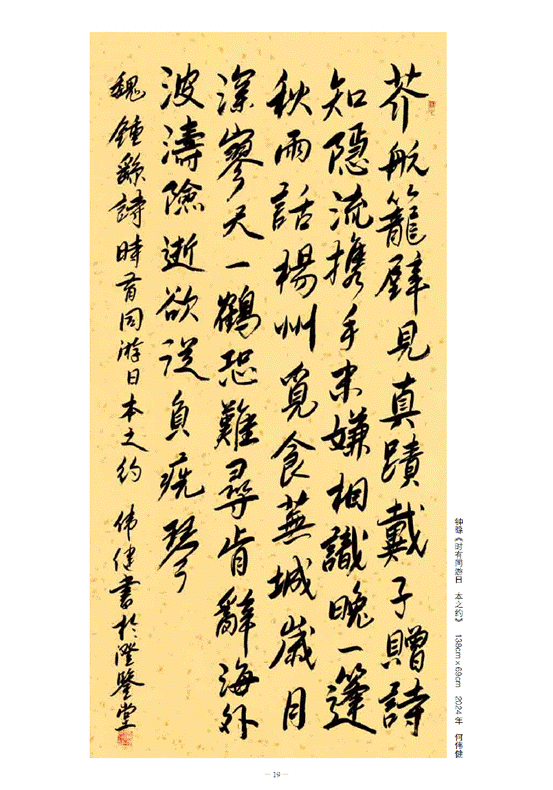 芥航籠壁見真蹟戴子贈詩
知隱流攜手未嫌相識晚一篷
秋雨話楊州覓食蕪城歲月
深寥天一鶴恐難尋肯辭海外
波濤險逝欲從負琴
魏鍾繇詩時有同游日本之約 偉健書於澄鑒堂
钟繇《时有同游日 本之约》 138cm×69cm 2024年 何伟健
— 19 —